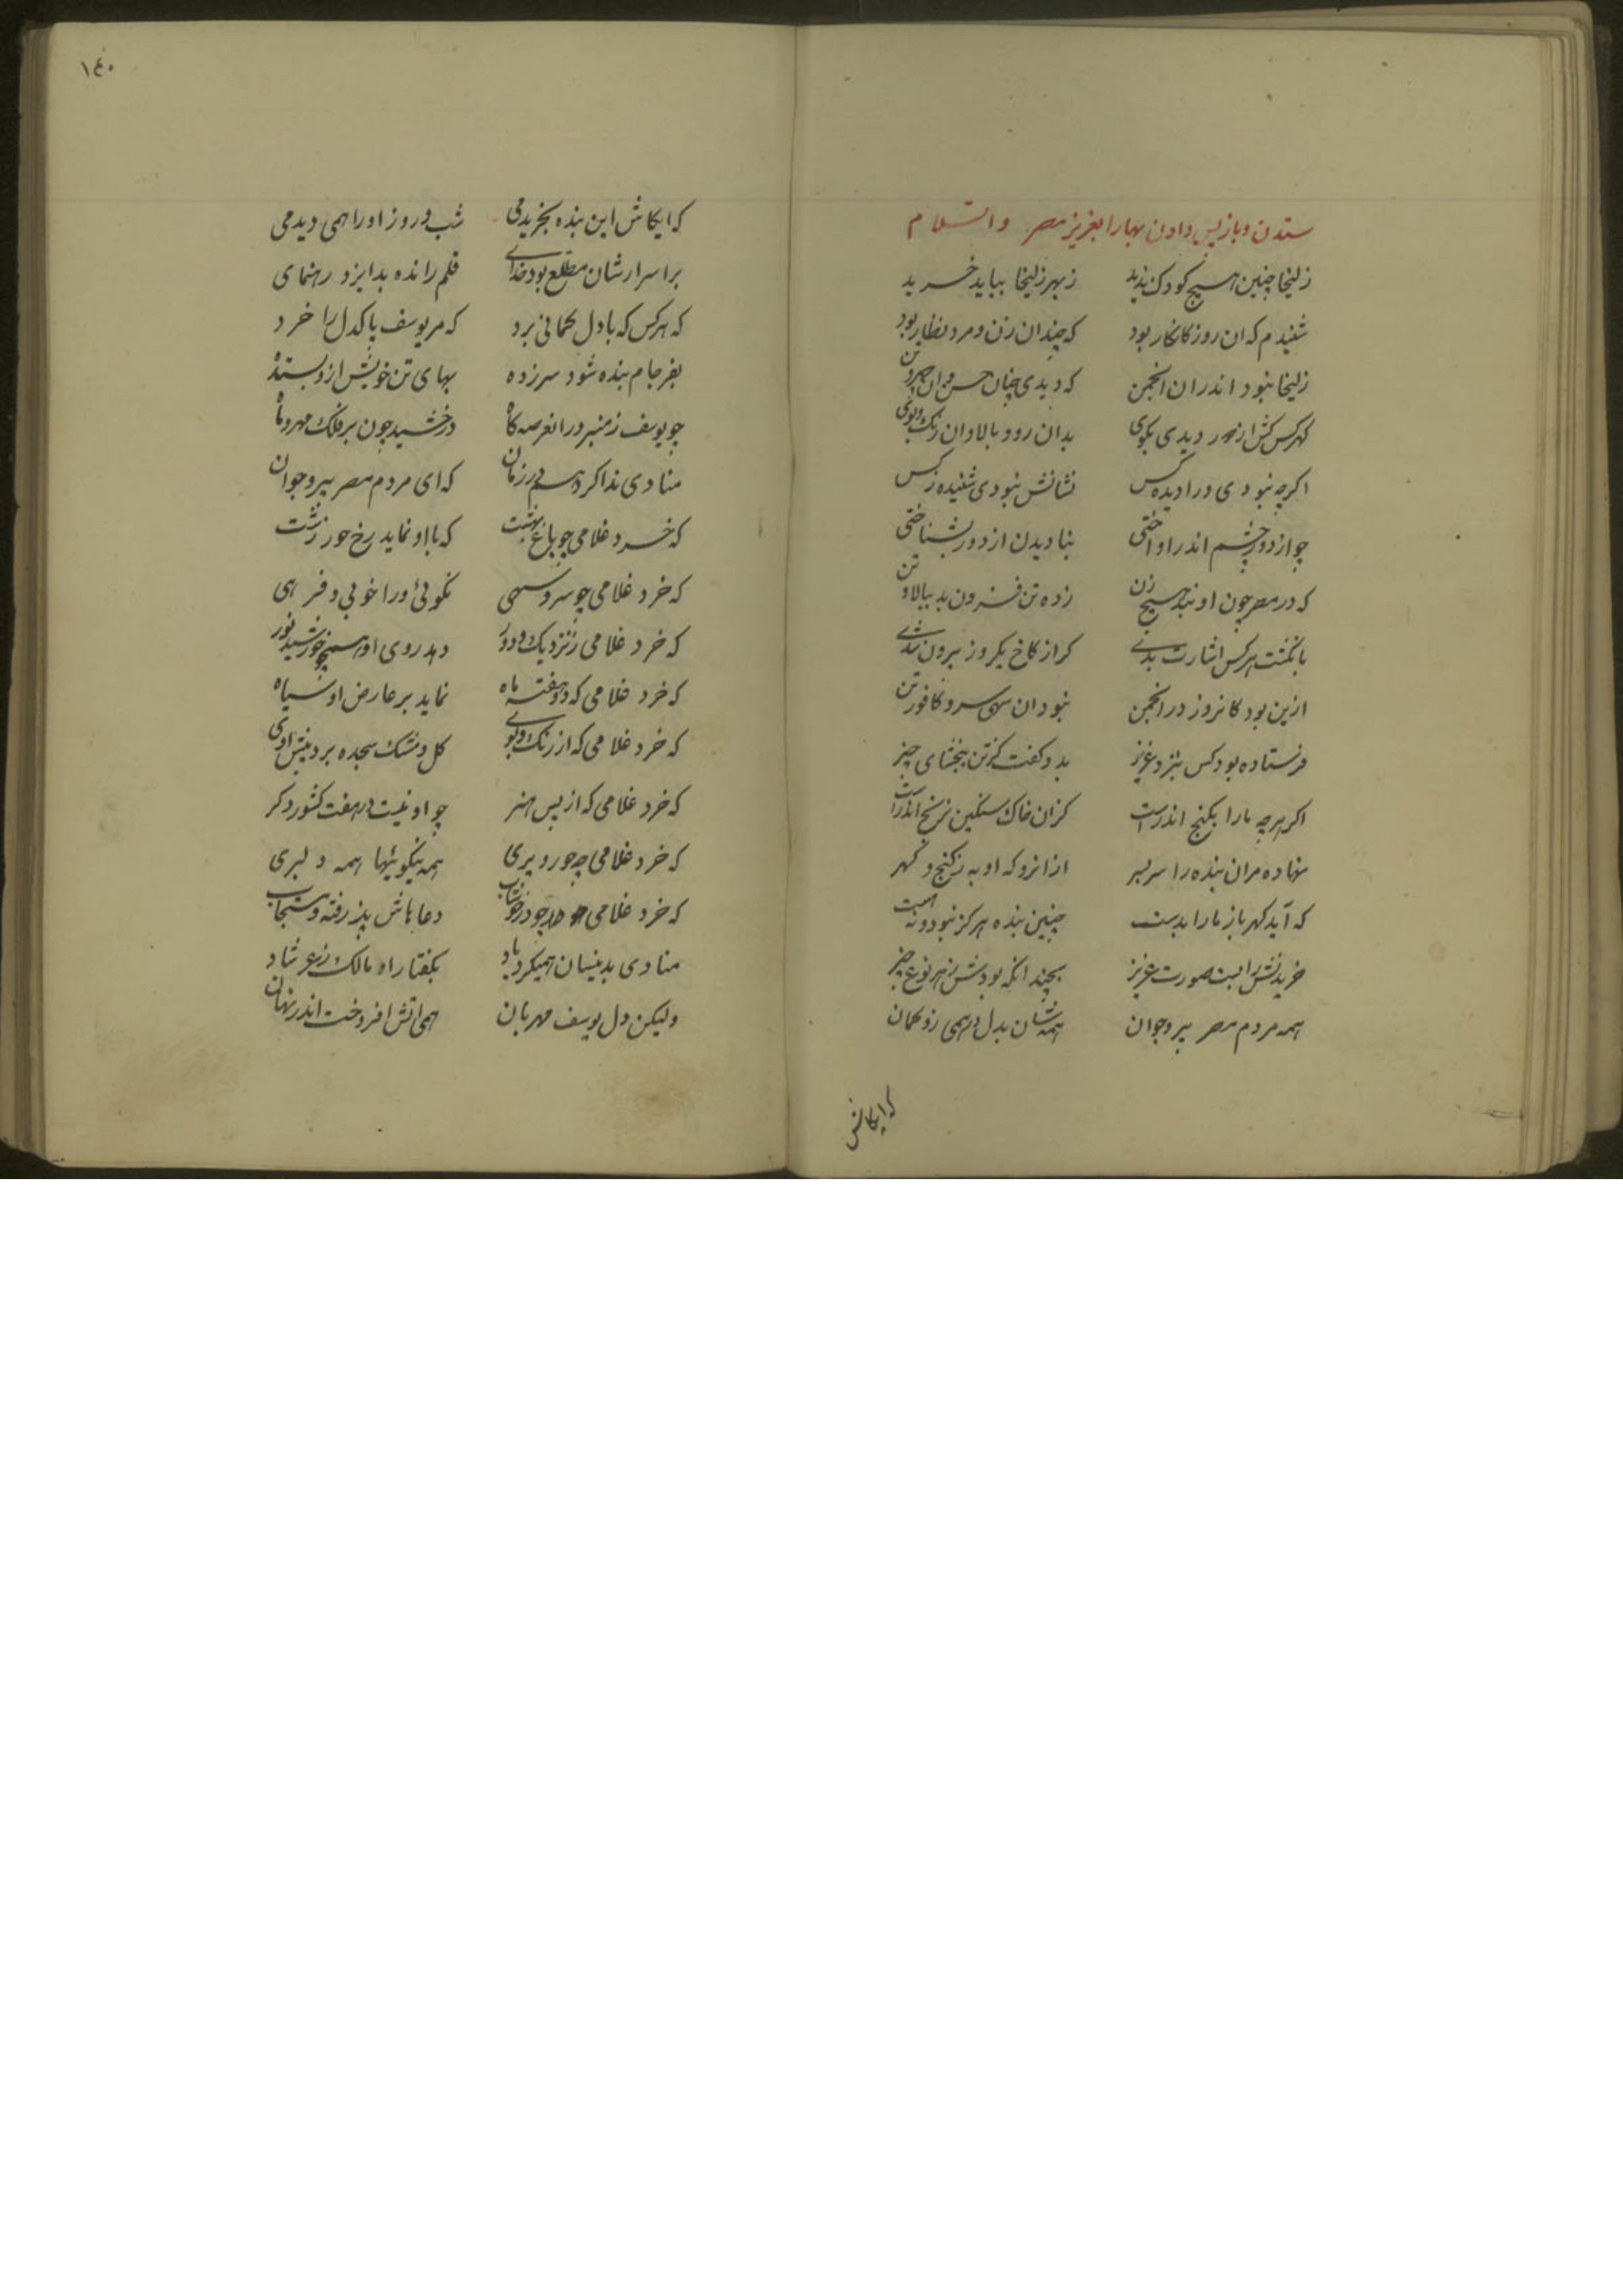 ستدن و باز پس دادن بها را بعزیز مصر والسلام
زلیخا چنین هیچ کودک ندید زبهر زلیخا بباید خرید
شنیدم که ان روز کانکار بود که چندان زن و مرد نظار بود
زلیخا نبود اندران انجمن که دیدی چنان حسن و ان
کهر کس کش از دور دیدی بکوی بدان رو و بالا و ان رنک و بوی
اکر چه نبودی ورا دیده کس نشانش نبودی شنیده ز کس
چو از دور چشم اندر او اختی بنا دیدن از دور بشناختی
که در مصر چون او نبد هیچ زن زده تن فزون بد ببالا و تن
بانکشت هر کس اشارت بدی کر از کاخ یکروز بیرون شدی
ازین بود کانروز در انجمن نبود ان سهی سرو کافور تن
فرستاده بود کس بنزد عزیز بدو کفت کز تن ببخشای چیز
اکر هرچه ما را بکنج اندرست کران خاک سنکین نرخ اندرست
بها ده مران بنده را سر بسر ازانرو که او به زکنج و کهر
که آید کهر باز ما را بدست چنین بنده هرکز نبود و نه است
خریدنش را بست صورت عزیز بچندانکه بودش زهر نوع چیز
همه مردم مصر پیر و جوان همه شان بدل در همی زد کمان
که ایکاش
۱٤۰
که ایکاش این بنده بخریدمی شب و روز او را همی دیدمی
بر اسرارشان مطلع بود خدای قلم رانده بد ایزد رهنمای
که هر کس که با دل کمانی برد که مر یوسف پاکدل را خرد
بفرجام بنده شود سر زده بهای تن خویش ازو بستده
چو یوسف ز منبر درانعرصه کاه درخشید چون بر فلک مهر و ماه
منادی ندا کرد هم در زمان که ای مردم مصر پیر و جوان
که خرد غلامی چو باغ بهشت که با او نماید رخ حور زشت
که خرد غلامی چو سرو سهی نکوئی ورا خوبی و فرهی
که خرد غلامی ز نزدیک و دور دهد روی او همچو خورشید نور
که خرد غلامی که دو هفته ماه نماید بر عارض او سیاه
که خرد غلامی که از رنک و بوی کل و مشک سجده برد پیش اوی
که خرد غلامی که از پس هنر چو او نیست در هفت کشور دکر
که خرد غلامی چو حور و پری همه نیکوئیها همه دلبری
که خرد غلامی چو در خوشاب دعاهاش پذرفته و مستجاب
منادی بدینسان همیکرد یاد بکفتار او مالک زعر شاد
ولیکن دل یوسف مهربان همی اتش افروخت اندر نهان